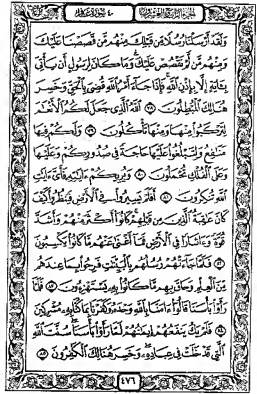 الجزء الرابع والعشرون ٤٠ سورة غافر
وَلَقَدْ أَرْسَلْنَا رُسُلًا مِّن قَبْلِكَ مِنْهُم مَّن قَصَصْنَا عَلَيْكَ
وَمِنْهُم مَّن لَّمْ نَقْصُصْ عَلَيْكَ وَمَا كَانَ لِرَسُولٍ أَن يَأْتِيَ
بِـَٔايَةٍ إِلَّا بِإِذْنِ ٱللَّهِ فَإِذَا جَآءَ أَمْرُ ٱللَّهِ قُضِيَ بِٱلْحَقِّ وَخَسِرَ
هُنَالِكَ ٱلْمُبْطِلُونَ ٧٨ ٱللَّهُ ٱلَّذِي جَعَلَ لَكُمُ ٱلْأَنْعَٰمَ
لِتَرْكَبُوا۟ مِنْهَا وَمِنْهَا تَأْكُلُونَ ٧٩ وَلَكُمْ فِيهَا
مَنَٰفِعُ وَلِتَبْلُغُوا۟ عَلَيْهَا حَاجَةً فِي صُدُورِكُمْ وَعَلَيْهَا
وَعَلَى ٱلْفُلْكِ تُحْمَلُونَ ٨٠ وَيُرِيكُمْ ءَايَٰتِهِۦ فَأَيَّ ءَايَٰتِ
ٱللَّهِ تُنكِرُونَ ٨١ أَفَلَمْ يَسِيرُوا۟ فِي ٱلْأَرْضِ فَيَنظُرُوا۟ كَيْفَ
كَانَ عَٰقِبَةُ ٱلَّذِينَ مِن قَبْلِهِمْ كَانُوٓا۟ أَكْثَرَ مِنْهُمْ وَأَشَدَّ
قُوَّةً وَءَاثَارًا فِي ٱلْأَرْضِ فَمَآ أَغْنَىٰ عَنْهُم مَّا كَانُوا۟ يَكْسِبُونَ
٨٢ فَلَمَّا جَآءَتْهُمْ رُسُلُهُم بِٱلْبَيِّنَٰتِ فَرِحُوا۟ بِمَا عِندَهُم
مِّنَ ٱلْعِلْمِ وَحَاقَ بِهِم مَّا كَانُوا۟ بِهِۦ يَسْتَهْزِءُونَ ٨٣ فَلَمَّا
رَأَوْا۟ بَأْسَنَا قَالُوٓا۟ ءَامَنَّا بِٱللَّهِ وَحْدَهُۥ وَكَفَرْنَا بِمَا كُنَّا بِهِۦ مُشْرِكِينَ
٨٤ فَلَمْ يَكُ يَنفَعُهُمْ إِيمَٰنُهُمْ لَمَّا رَأَوْا۟ بَأْسَنَا سُنَّتَ ٱللَّهِ
ٱلَّتِي قَدْ خَلَتْ فِي عِبَادِهِۦ وَخَسِرَ هُنَالِكَ ٱلْكَٰفِرُونَ ٨٥
٤٧٦